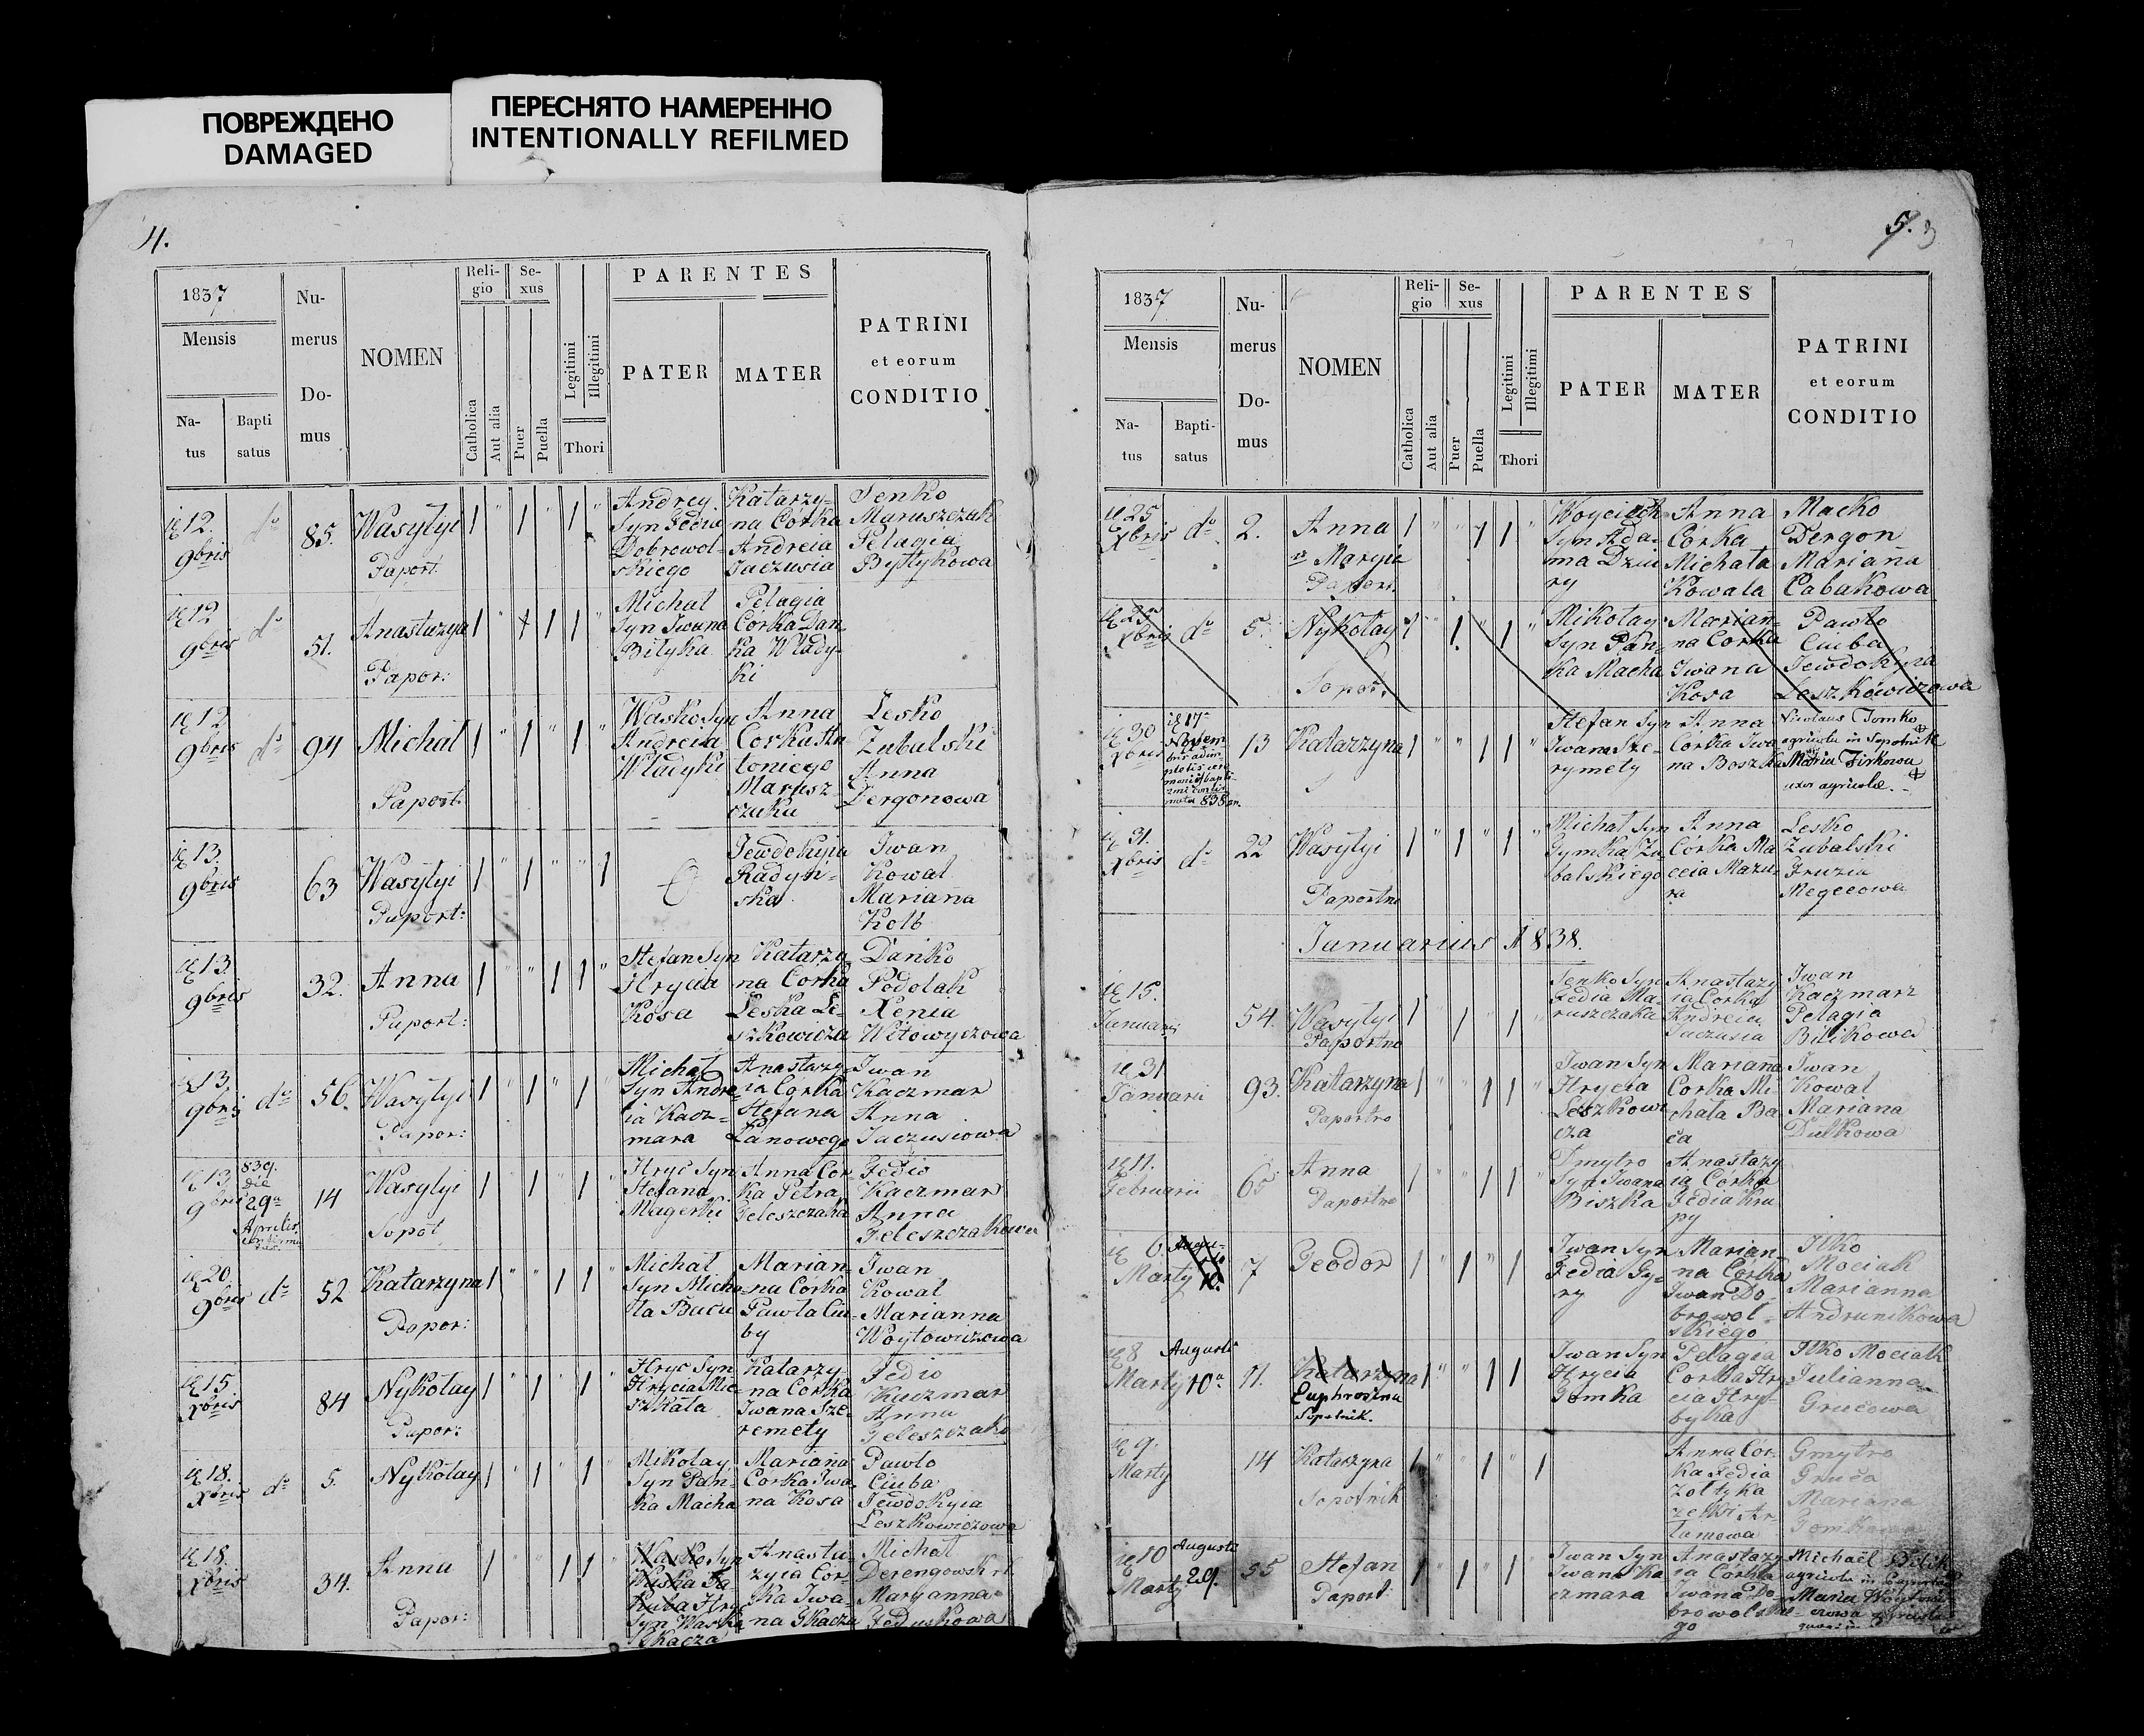 ПОВРЕЖДЕНО
DAMAGED
ПЕРЕСНЯТО НАМЕРЕННО
INTENTIONALLY REFILMED
4.
1837
Mensis
Na-
tus
Bapti
satus
Nu-
merus
Do-
mus
NOMEN
Reli-
gio
Catholica
Aut alia
Se-
xus
Puer
Puella
Legitimi
Illegitimi
Thori
PARENTES
PATER
MATER
PATRINI
et eorum
CONDITIO
12.
9bris
do
85.
Wasylyi
Paport.
Andrey
Syn Fedia
Dobrowol-
skiego
Katarzy-
na Córka
Andreia
Jaczusia
Senko
Maruszczak
Pelagia
Bylykowa
12
9bris
do
51.
Anastazya
Papor:
Michal
Syn Iwana
Bilyka
Pelagia
Corka Dan
ka Wlady-
ki
12
9bris
do
94
Michal
Paport.
Wasko Syn
Andreia
Wladyki
Anna
Corka An
toniego
Marusz-
czaka
Lesko
Zubalski
Anna
Dergonowa
13.
9bris
63
Wasylyi
Paport:
Jewdokyia
Radyn-
ska
Iwan
Kowal
Marianna
Kolb
13.
9bris
32.
Anna
Paport:
Stefan Syn
Hrycia
Kosa
Katarzy
na Corka
Leska Le-
szkowicza
Danko
Podolak
Xenia
Wetowyczowa
13.
9bris
do
56.
Wasylyi
Papor:
Michal
Syn Andre
ia Kacz-
mara
Anastazy
ia Corka
Stefana
Lanowego
Iwan
Kaczmar
Anna
Jaczusiowa
13
9bris
839.
die
29a
Aprilis
14
Wasylyi
Sopot
Hryc Syn
Stefana
Magerki
Anna Cor-
ka Petra
Teleszczaka
Fedio
Kaczmar
Anna
Teleszczakowa
20
9bris
do
52
Katarzyna
Papor:
Michal
Syn Micha
la Baca
Marian-
na Córka
Pawla Ciu-
by
Iwan
Kowal
Marianna
Woytowiczowa
15
Xbris
84
Nykolay
Papor:
Hryc Syn
Hrycia Mic-
szkala
Katarzy
na Corka
Iwana Sze-
remety
Fedio
Kaczmar
Anna
Teleszczako
18.
Xbris
do
5.
Nykolay
Mikolay
Syn Pan-
ka Macha
Mariana
Corka Iwa
na Kosa
Pawlo
Ciuba
Jewdokyia
Leszkowiczowa
18.
Xbris
34.
Anna
Papor:
Wasko Syn
Hryc
Syn Waska
Tkacza
Anasta-
zyia Cor-
ka Iwa-
na Tkacza
Michal
Derengowski
Maryanna
Feduskowa
5.
3
1837
Mensis
Na-
tus
Bapti-
satus
Nu-
merus
Do-
mus
NOMEN
Reli-
gio
Catholica
Aut alia
Se-
xus
Puer
Puella
Legitimi
Illegitimi
Thori
PARENTES
PATER
MATER
PATRINI
et eorum
CONDITIO
25
Xbris
do
2.
Anna
Maryia
Paport.
Woyciech
Syn Ada-
ma Dziu
ry
Anna
Córka
Michala
Kowala
Macko
Dergon
Marianna
Cabakowa
Xbris
do
5.
Nykolay
Sopot.
Mikolay
Syn Pan-
ka Macha
Marian-
na Corka
Iwana
Kosa
Pawlo
Ciuba
Jewdokyia
Leszkowiczowa
30
Xbris
17a
Novem-
bris
13
Katarzyna
Stefan Syn
Iwana Sze-
rymety
Anna
Córka Iwa
na Boszka
Nicolaus Tomko
agricola in Sopotnik
Maria Firkowa
uxor agricolae.
31.
Xbris
do
22
Wasylyi
Paportno
Michal Syn
Tymka Zu
balskiego
Anna
Córka Ma
ceia Mazu-
ra
Lesko
Zubalski
Fruzia
Megecowa
Januarius 1838.
15.
Januarii
54.
Wasylyi
Paportno
Senko Syn
Fedia Ma-
ruszczaka
Anastazy
ia Corka
Andreia
Jaczusia
Iwan
Kaczmarz
Pelagia
Bilikowa
31
Januarii
93.
Katarzyna
Paportno
Iwan Syn
Hrycia
Leszkowi
cza
Marianna
Corka Mi-
chala Ba
ca
Iwan
Kowal
Mariana
Dulkowa
11.
Februarii
65
Anna
Paportno
Dmytro
Syn Iwana
Biszka
Anastazy
ia Córka
Fedia Kru
py
6.
Martij
7
Teodor
Iwan Syn
Fedia Gy-
ry
Marian-
na Corka
Iwan Do-
browol-
skiego
Ilko
Mociak
Marianna
Andrunikowa
8
Martij
Augusti
10a
11.
Katarzyna
Euphrosina
Sopotnik.
Iwan Syn
Hrycia
Tomka
Pelagia
Corka Hry
cia Hry-
byka
Ilko Mociak
Julianna
Grucowa
9.
Martij
14
Katarzyna
Sopotnik
Anna Cór-
ka Fedia
Zoltyka
Gmytro
Gruca
Mariana
10
Martij
Augusti
29.
55
Stefan
Paport:
Iwan Syn
Iwana Ka
czmara
Anastazy
ia Córka
Iwana Do-
browolskie-
go
Michaël Bilik
agricola in
Maria